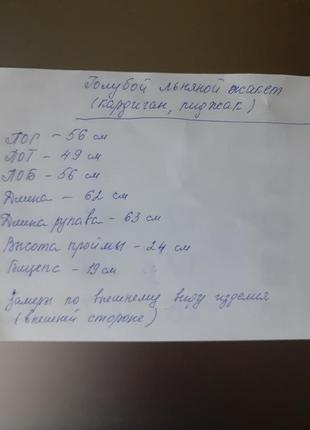 Голубой льняной жакет
(кардиган, пиджак)
ПОГ – 56 см
ПОТ – 49 см
ПОБ – 56 см
Длина – 62 см
Длина рукава – 63 см
Высота проймы – 24 см
Бицепс – 19 см
Замеры по внешнему виду изделия
(внешней стороне)